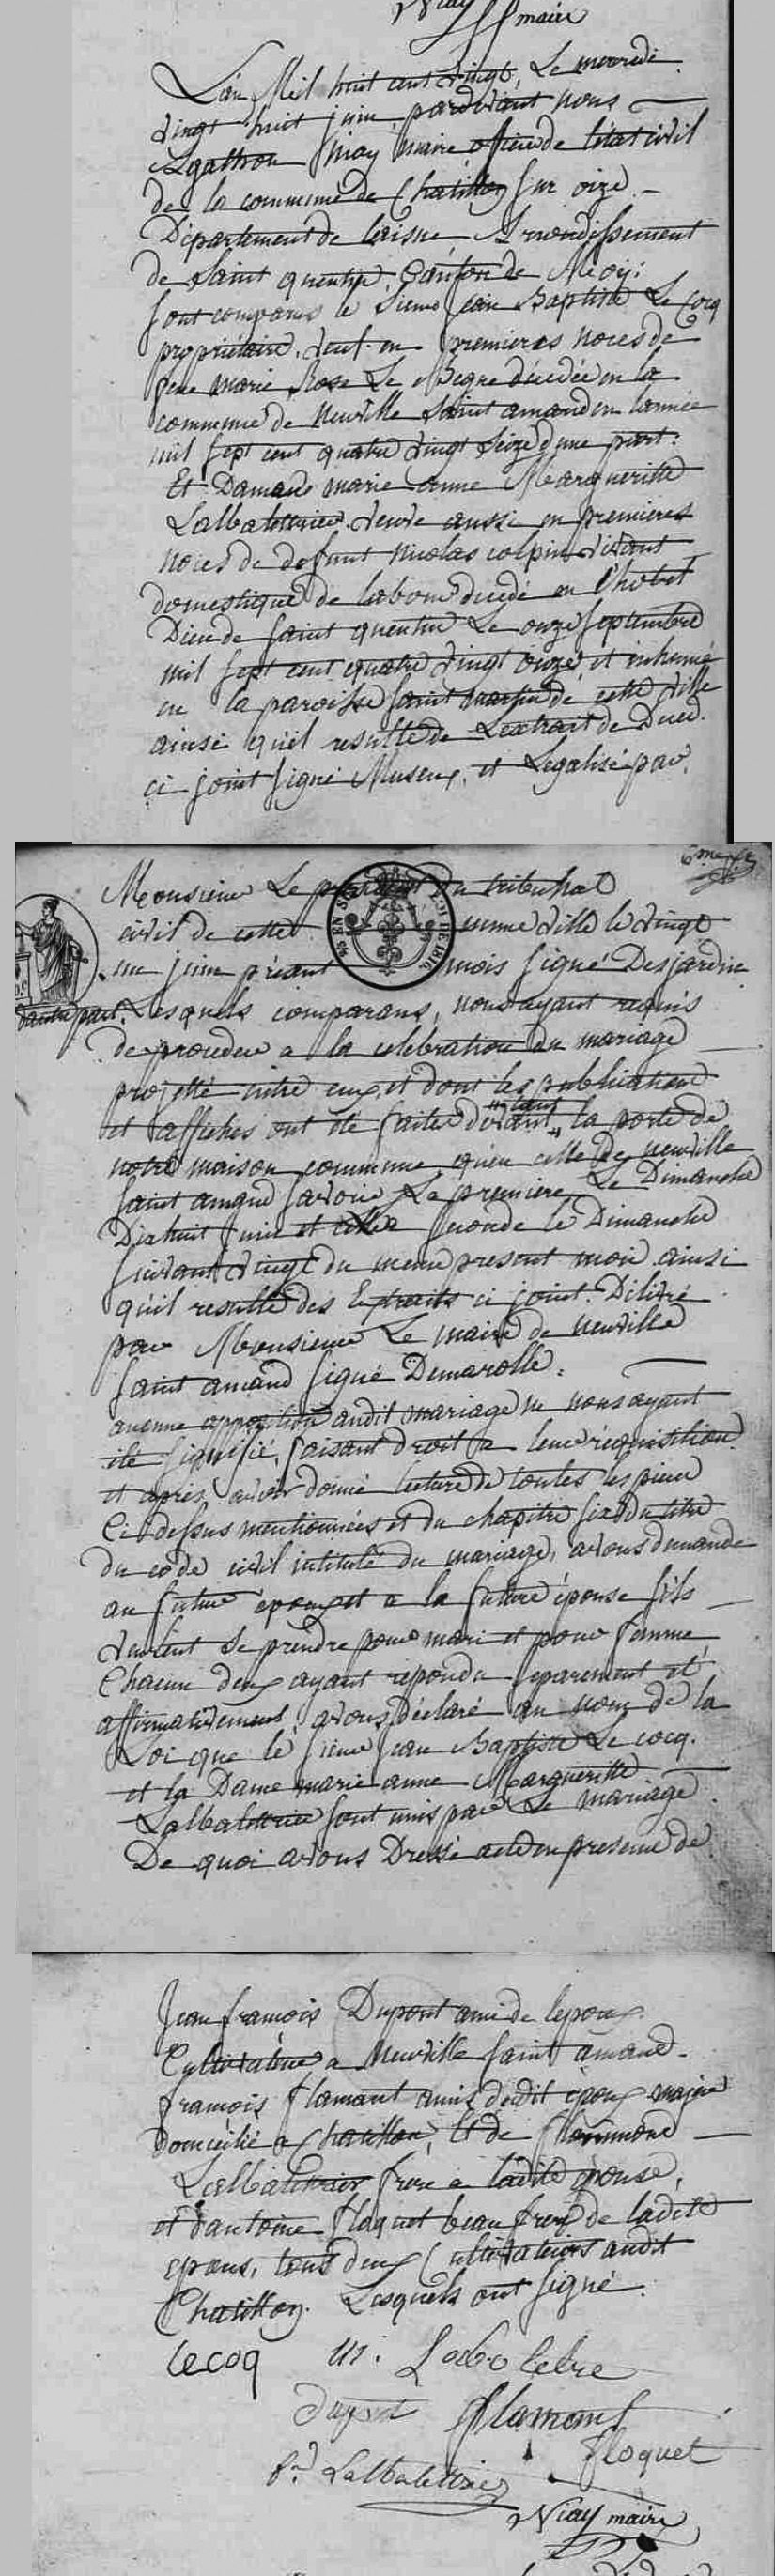 Viay maire
L'an Mil huit cent vingt, Le mercredi
vingt huit juin, pardevant nous
Agathon Viay maire, officier de l'état civil
de la commune de Chatillon sur oize
Département de laisne, Arrondissement
de Saint quentin, Canton de Moÿ:
sont comparus le Sieur Jean Baptiste Le Cocq
propriétaire, veuf en premieres noces de
feue marie Rose Le Begue decédée en la
commune de Neuville Saint amand en l'année
mil sept cent quatre vingt seize d'une part:
Et Damane marie anne Margueritte
Lalbalettrier veuve aussi en premieres
noces de defunt Nicolas colpin vivant
domestique de labour decedé en l'hotel
Dieu de Saint quentin Le onze Septembre
mil sept cent quatre vingt onze, et inhumé
en la paroisse saint martin de cette ville
ainsi qu'il resulte de Lextrait de Deced.
ci joint signé Museux, et Legalisé par
6me
Monsieur Le président du tribunal
civil de cette meme ville le vingt
un juin présent mois signé Desjardin
d'autre part. Lesquels comparans, nous ayant requis
de proceder a la celebration du mariage
projetté entre eux et dont les publications
et affiches ont été faites devant tant la porte de
notre maison commune qu'en celle de neuville
saint amand savoir La premiere Le Dimanche
Dixhuit Juin et celle seconde le Dimanche
suivant vingt du meme present mois ainsi
qu'il resulte des Extraits ci joint. Délivré
par Monsieur Le maire de neuville
saint amand signé Demarolle.
aucune opposition audit mariage ne nous ayant
été signifié, faisant droit a leur réquisition
et après avoir donné lecture de toutes les pieces
Ci dessus mentionnées et du chapitre six du titre
du code civil intitulé du mariage, avons demandé
au futur epoux et a la future épouse s'ils
veulent se prendre pour mari et pour femme
Chacun deux ayant repondu separement et
affirmativement, avons déclaré au nom de la
Loi que le sieur Jean Baptiste Le cocq.
et la Dame marie anne Margueritte
Lalbalettrier sont unis par Le mariage
De quoi avons Dressé acte en presence de
Jean francois Dupont ami de lepoux
Cultivateur a Neuville saint amand
francois flamant amis dudit époux majeur
domicilié a Chatillon, Et de
Lalbalettrier frere a ladite épouse,
et d'antoine floquet beau frere de ladite
epouse, tous deux Cultivateurs audit
Chatillon. Lesquels ont signé.
Lecoq
Dupont flamant
floquet
Lalbalettrier
Viay maire